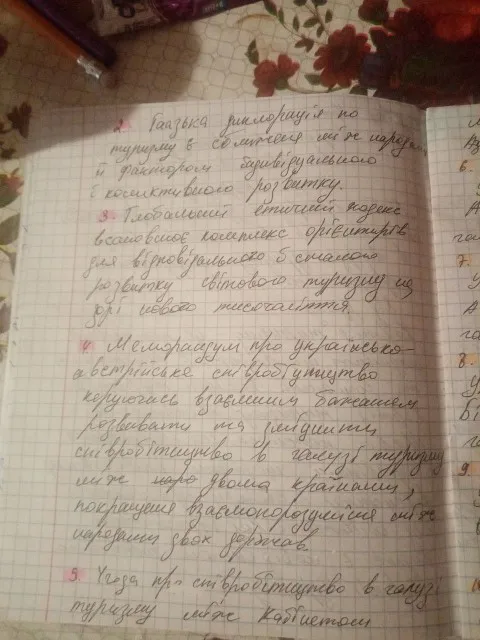 2. Гаазька декларація по
туризму в зближенні між народами,
її фактором індивідуального
і колективного розвитку.
3. Глобальний етичний кодекс
встановлює комплекс орієнтирів
для відповідального й сталого
розвитку світового туризму на
зорі нового тисячоліття.
4. Меморандум про українсько-
австрійське співробітництво
керуючись взаємним бажанням
розвивати та зміцнити
співробітництво в галузі туризму
між наро двома країнами,
покращення взаєморозуміння між
народами двох держав.
5. Угода про співробітництво в галузі
туризму між Кабінетом
6.
7.
8.
9.